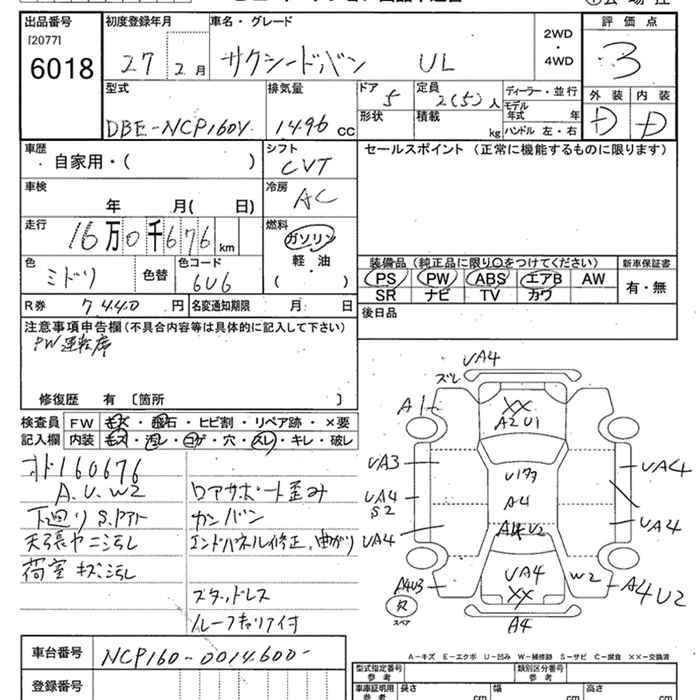 出品番号 初度登録年月 車名・グレード 評価点
[2077]
6018 27 2月 サクシードバン UL 2WD・4WD 3
型式 排気量 ドア 定員 ディーラー・並行 外装 内装
DBE-NCP160V 1496 cc 5 2(5)人 モデル年式 年 D D
形状 積載 kg ハンドル 左・右
車歴 シフト セールスポイント (正常に機能するものに限ります)
・自家用・( ) CVT
車検 冷房
年 月( 日) AC
走行 燃料
16万0千676km ガソリン
軽・油
( )
装備品 (純正品に限り○をつけてください) 新車保証書
色 色替 色コード PS PW ABS エアB AW 有・無
ミドリ 6U6 SR ナビ TV カワ
R券 7440円 名変通知期限 月 日 後日品
注意事項申告欄(不具合内容等は具体的に記入して下さい)
PW運転席
修復歴 有 〔箇所 〕
検査員 FW キズ・飛石・ヒビ割・リペア跡・×要
記入欄 内装 キズ・汚レ・コゲ・穴・スレ・キレ・破レ
160676
A.U.W2 ロアサポート歪み
下廻りS. カンバン
天張ヤニ汚レ エンドパネル修正、曲がり
荷室キズ汚レ
スタッドレス
ルーフキャリア付
UA4
ズレ
A1 XX
A2U1
UA3 U1
UA4 A4 UA4
S2
UA4 A4U2 UA4
UA4 W2
A4U3 XX A4U2
スペア
A4
A-キズ E-エクボ U-凹み W-補修跡 S-サビ C-腐食 XX-交換済
車台番号 NCP160-0014600-
型式指定番号 参考 類別区分番号 参考
登録番号
車庫証明用 参考 長さ cm 幅 cm 高さ cm